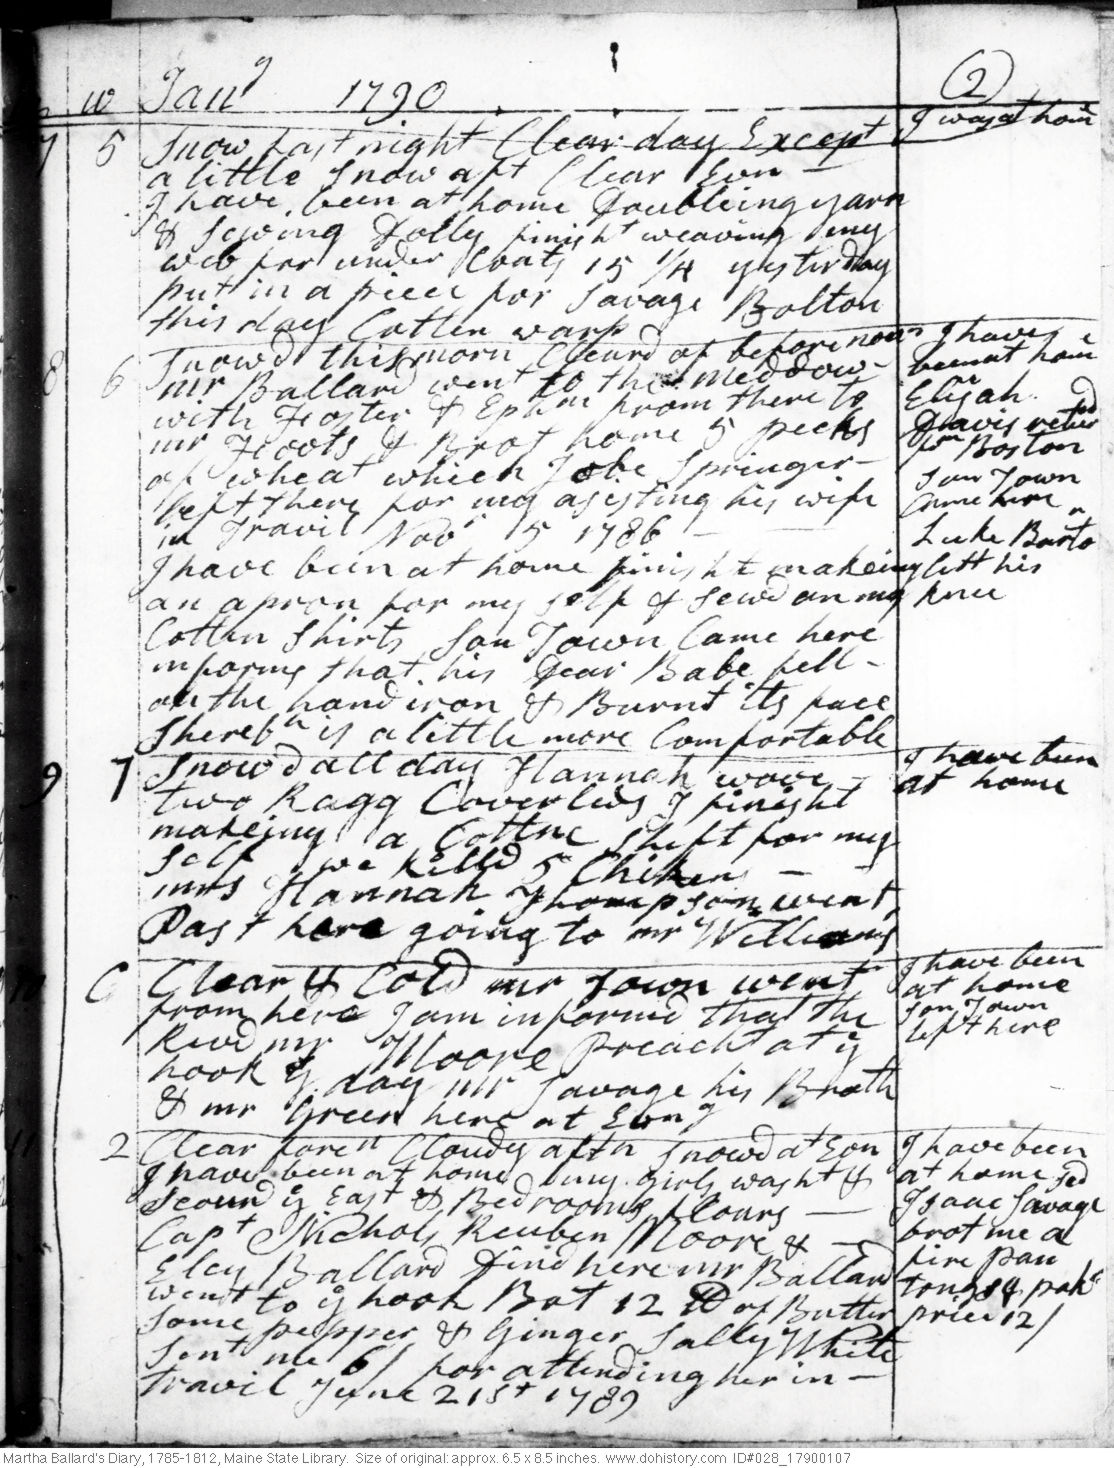 w Jany 1790 (2)
7 5 Snow last night Clear day Except
a little snow aft Clear Evn -
I have been at home Doubleing yarn
& sewing Dolly finisht weaving my
web for under Coats 15 1/4 yesterday
put in a piece for Savage Bolton
this day Cotten warp
I was at home
8 6 Snowd this morn Cleard of before noon
mr Ballard went to the meddow -
with Foster & Ephm from there to
mr Foots & Brot home 5 pecks
of wheat which Jobe Springer -
left there for my asisting his wife
in Travil Novr 15 1786 -
I have been at home finisht makeing
an apron for my self & sewd on my
Cotten shirts son Town Came here
informs that his Dear Babe fell -
on the handiron & Burnt its face
Sherebh is a little more Comfortable
I have
been at home
Elijah
Davis returd
frm Boston
son Town
Came here
Luke Barton
left his
knee
9 7 Snowd all day Hannah wove -
two Ragg Coverlids I finisht
makeing a Cottne shift for my
self we killd 5 Chiken -
mrs Hannah Thompson went
Past here going to mr Williams
I have been
at home
10 C Clear & Cold mr Town went
from here I am informd that the
Revd mr Moore Preacht at ye
hook ys day mr Savage his Broth
& mr Green here at Evng
I have been
at home
son Town
left here
11 2 Clear foren Cloudy aftn snowd at Evn
I have been at home my girls washt &
scourd ye East & Bedrooms flours -
Capt Nichols Reuben Moore & -
Eley Ballard Dind here mr Ballard
went to ye hook Bot 12 lb of Butter
some pepper & Ginger Sally White
sent me 6/ for attending her in -
travil June 21st 1789
I have been
at home
Isaac Savage
brot me a
fire pan
tongs & pokr
price 12/
Martha Ballard's Diary, 1785-1812, Maine State Library. Size of original: approx. 6.5 x 8.5 inches. www.dohistory.com ID#028_17900107